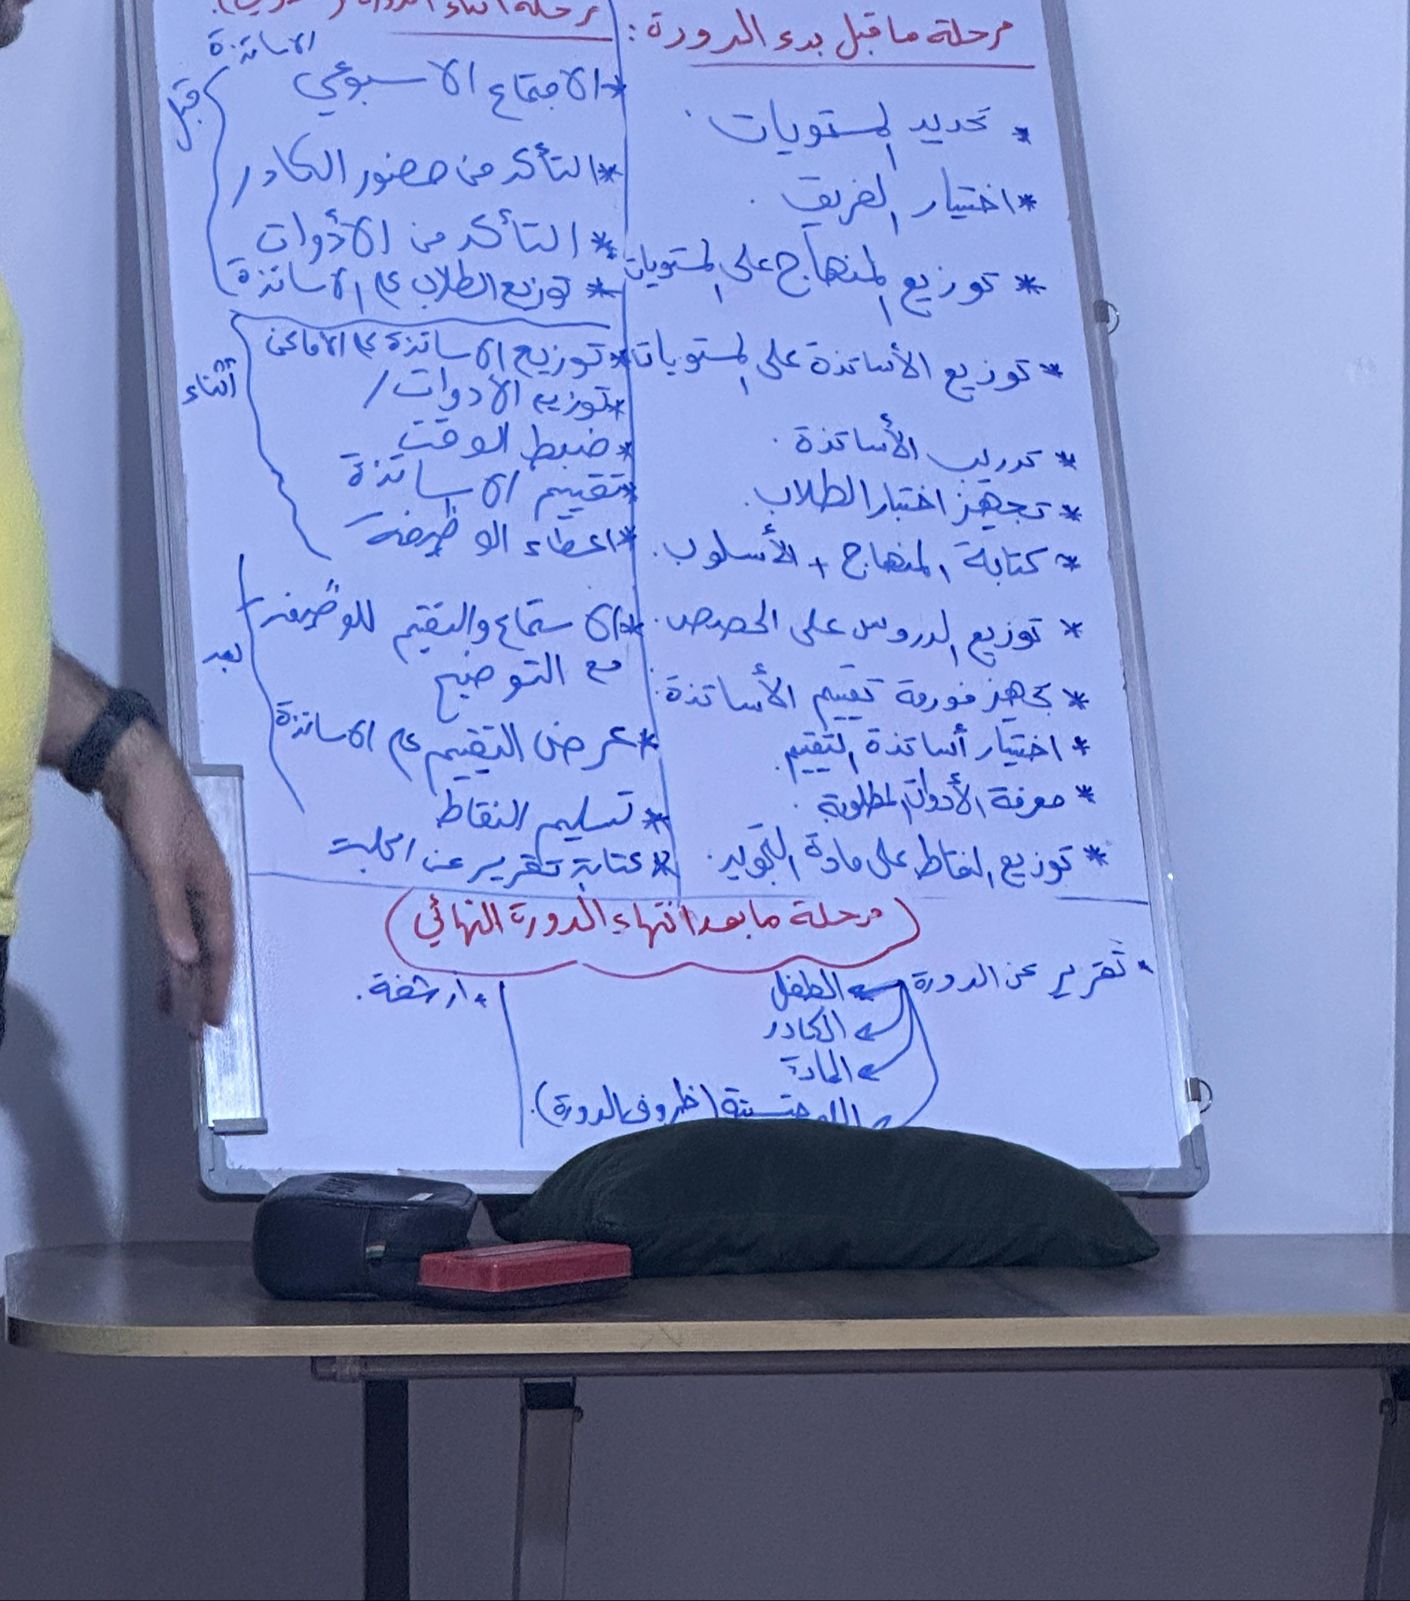 مرحلة ما قبل بدء الدورة:
* تحديد المستويات.
* اختيار الفريق.
* توزيع المنهاج على المستويات
* توزيع الأساتذة على المستويات
* تدريب الأساتذة.
* تجهيز اختبار الطلاب.
* كتابة المنهاج + الأسلوب.
* توزيع الدروس على الحصص.
* تجهيز فورمة تقييم الأساتذة.
* اختيار أساتذة التقييم.
* معرفة الأدوات المطلوبة.
* توزيع النقاط على مادة التجويد.
مرحلة اثناء الدورة
قبل
الاساتذة
* الاجتماع الاسبوعي
* التأكد من حضور الكادر
* التأكد من الأدوات
* توزيع الطلاب ع الاساتذة
أثناء
* توزيع الاساتذة ع الاماكن
* توزيع الادوات
* ضبط الوقت
* تقييم الاساتذة
* اعطاء الوظيفة
بعد
* الاستماع والتقييم للوظيفة
مع التوضيح
* عرض التقييم ع الاساتذة
* تسليم النقاط
* كتابة تقرير عن الجلسة
(مرحلة ما بعد انتهاء الدورة النهائي)
* تقرير عن الدورة
الطفل
الكادر
المادة
(ظروف الدورة).
* ارشفة.